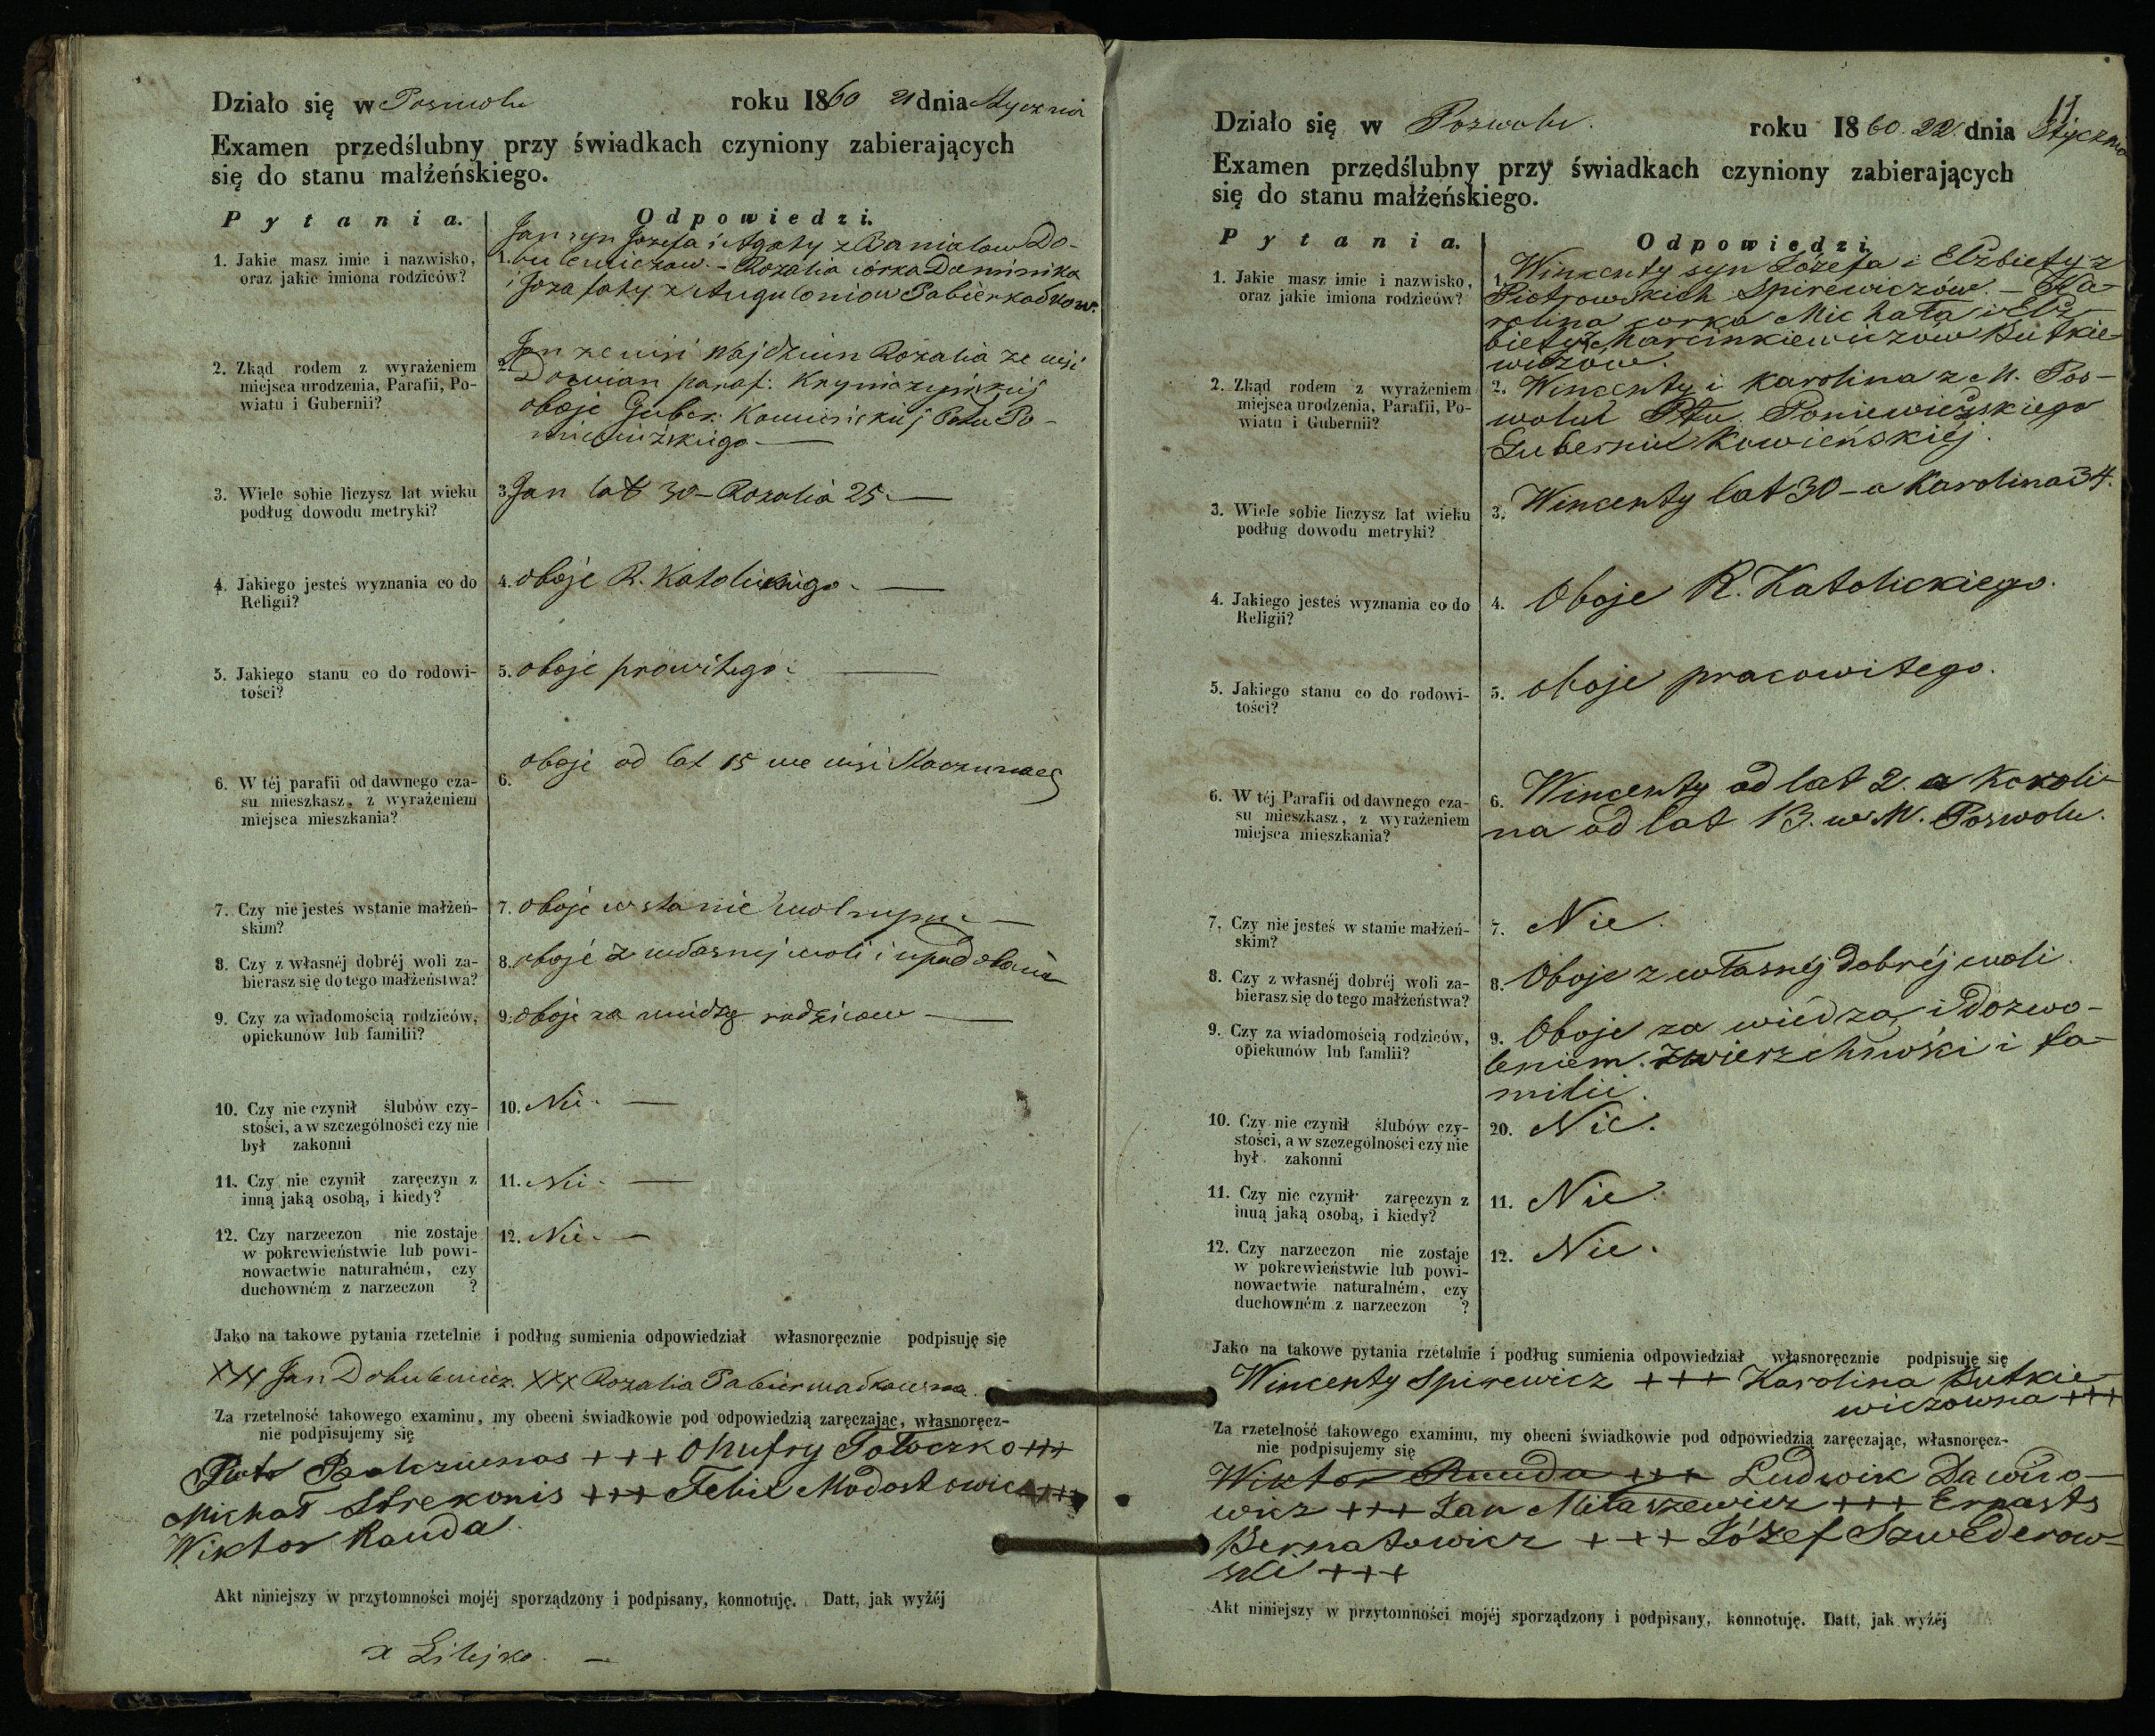 Działo się w Poswolu roku 1860 21 dnia Stycznia
Examen przedślubny przy świadkach czyniony zabierających
się do stanu małżeńskiego.
Pytania. Odpowiedzi.
1. Jakie masz imie i nazwisko,
oraz jakie imiona rodziców?
1. Jan syn Jozefa i Agaty z Do-
Rozalia córka Dominika
i Jozafaty z
2. Zkąd rodem z wyrażeniem
miejsca urodzenia, Parafii, Po-
wiatu i Gubernii?
2. Jan ze wsi Rozalia ze wsi
paraf:
oboje Guber. Kowieńskiej Pttu Po-
niewiżskiego
3. Wiele sobie liczysz lat wieku
podług dowodu metryki?
3. Jan lat 30 – Rozalia 25. —
4. Jakiego jesteś wyznania co do
Religii?
4. oboje R. Katolickiego. —
5. Jakiego stanu co do rodowi-
tości?
5. oboje
6. W téj parafii od dawnego cza-
su mieszkasz, z wyrażeniem
miejsca mieszkania?
6. oboje od lat 15 we wsi
7. Czy nie jesteś wstanie małżeń-
skim?
7. oboje w stanie wolnym. —
8. Czy z własnéj dobréj woli za-
bierasz się do tego małżeństwa?
8. oboje z własnej woli i upodobania
9. Czy za wiadomością rodziców,
opiekunów lub familii?
9. oboje za wiedzą rodziców —
10. Czy nie czynił ślubów czy-
stości, a w szczególności czy nie
był zakonni
10. Nie. —
11. Czy nie czynił zaręczyn z
inną jaką osobą, i kiedy?
11. Nie. —
12. Czy narzeczon nie zostaje
w pokrewieństwie lub powi-
nowactwie naturalném, czy
duchowném z narzeczon ?
12. Nie. —
Jako na takowe pytania rzetelnie i podług sumienia odpowiedział własnoręcznie podpisuję się
XXX Jan XXX Rozalia
Za rzetelność takowego examinu, my obecni świadkowie pod odpowiedzią zaręczając, własnoręcz-
nie podpisujemy się
Piotr +++ Onufry Tołoczko +++
Michał Strekonis +++ Felix Modostowicz +++
Wiktor Rauda.
Akt niniejszy w przytomności mojéj sporządzony i podpisany, konnotuję. Datt, jak wyżéj
x Lilejko. —
11
Działo się w Poswolu. roku 1860. 22. dnia Stycznia
Examen przedślubny przy świadkach czyniony zabierających
się do stanu małżeńskiego.
Pytania. Odpowiedzi
1. Jakie masz imie i nazwisko,
oraz jakie imiona rodziców?
1. Wincenty syn Józefa i Elżbiety z
Piotrowskich Spirewiczów. – Ka-
rolina corka Michała i Elż-
biety z Marcinkiewiczów Butkie-
wiczów.
2. Zkąd rodem z wyrażeniem
miejsca urodzenia, Parafii, Po-
wiatu i Gubernii?
2. Wincenty i Karolina z M. Pos-
wolul Pttu. Poniewieżskiego
Gubernii Kowieńskiéj.
3. Wiele sobie liczysz lat wieku
podług dowodu metryki?
3. Wincenty lat 30 – a Karolina 34.
4. Jakiego jesteś wyznania co do
Religii?
4. Oboje R. Katolickiego.
5. Jakiego stanu co do rodowi-
tości?
5. oboje pracowitego.
6. W téj Parafii od dawnego cza-
su mieszkasz, z wyrażeniem
miejsca mieszkania?
6. Wincenty od lat 2. a Karoli-
na od lat 13. w M. Poswolu.
7. Czy nie jesteś w stanie małżeń-
skim?
7. Nie.
8. Czy z własnéj dobréj woli za-
bierasz się do tego małżeństwa?
8. Oboje z własnéj dobréj woli.
9. Czy za wiadomością rodziców,
opiekunów lub famlii?
9. Oboje za wiedzą i Dozwo-
leniem. zwierzchnośki i fa-
milii.
10. Czy nie czynił ślubów czy-
stości, a w szczególności czy nie
był zakonni
20. Nie.
11. Czy nie czynił zaręczyn z
inną jaką osobą, i kiedy?
11. Nie.
12. Czy narzeczon nie zostaje
w pokrewieństwie lub powi-
nowactwie naturalném, czy
duchowném z narzeczon ?
12. Nie.
Jako na takowe pytania rzetelnie i podług sumienia odpowiedział własnoręcznie podpisuję się
Wincenty Spirewicz +++ Karolina Butkie-
wiczowna +++
Za rzetelność takowego examinu, my obecni świadkowie pod odpowiedzią zaręczając, własnoręcz-
nie podpisujemy się
Wiktor Rauda +++ Ludwik Dawido-
wicz +++ Jan Miłaszewicz +++ Ernasts
Bernatowicz +++ Józef Szwederow-
ski +++
Akt niniejszy w przytomności mojéj sporządzony i podpisany, konnotuję. Datt, jak wyżéj